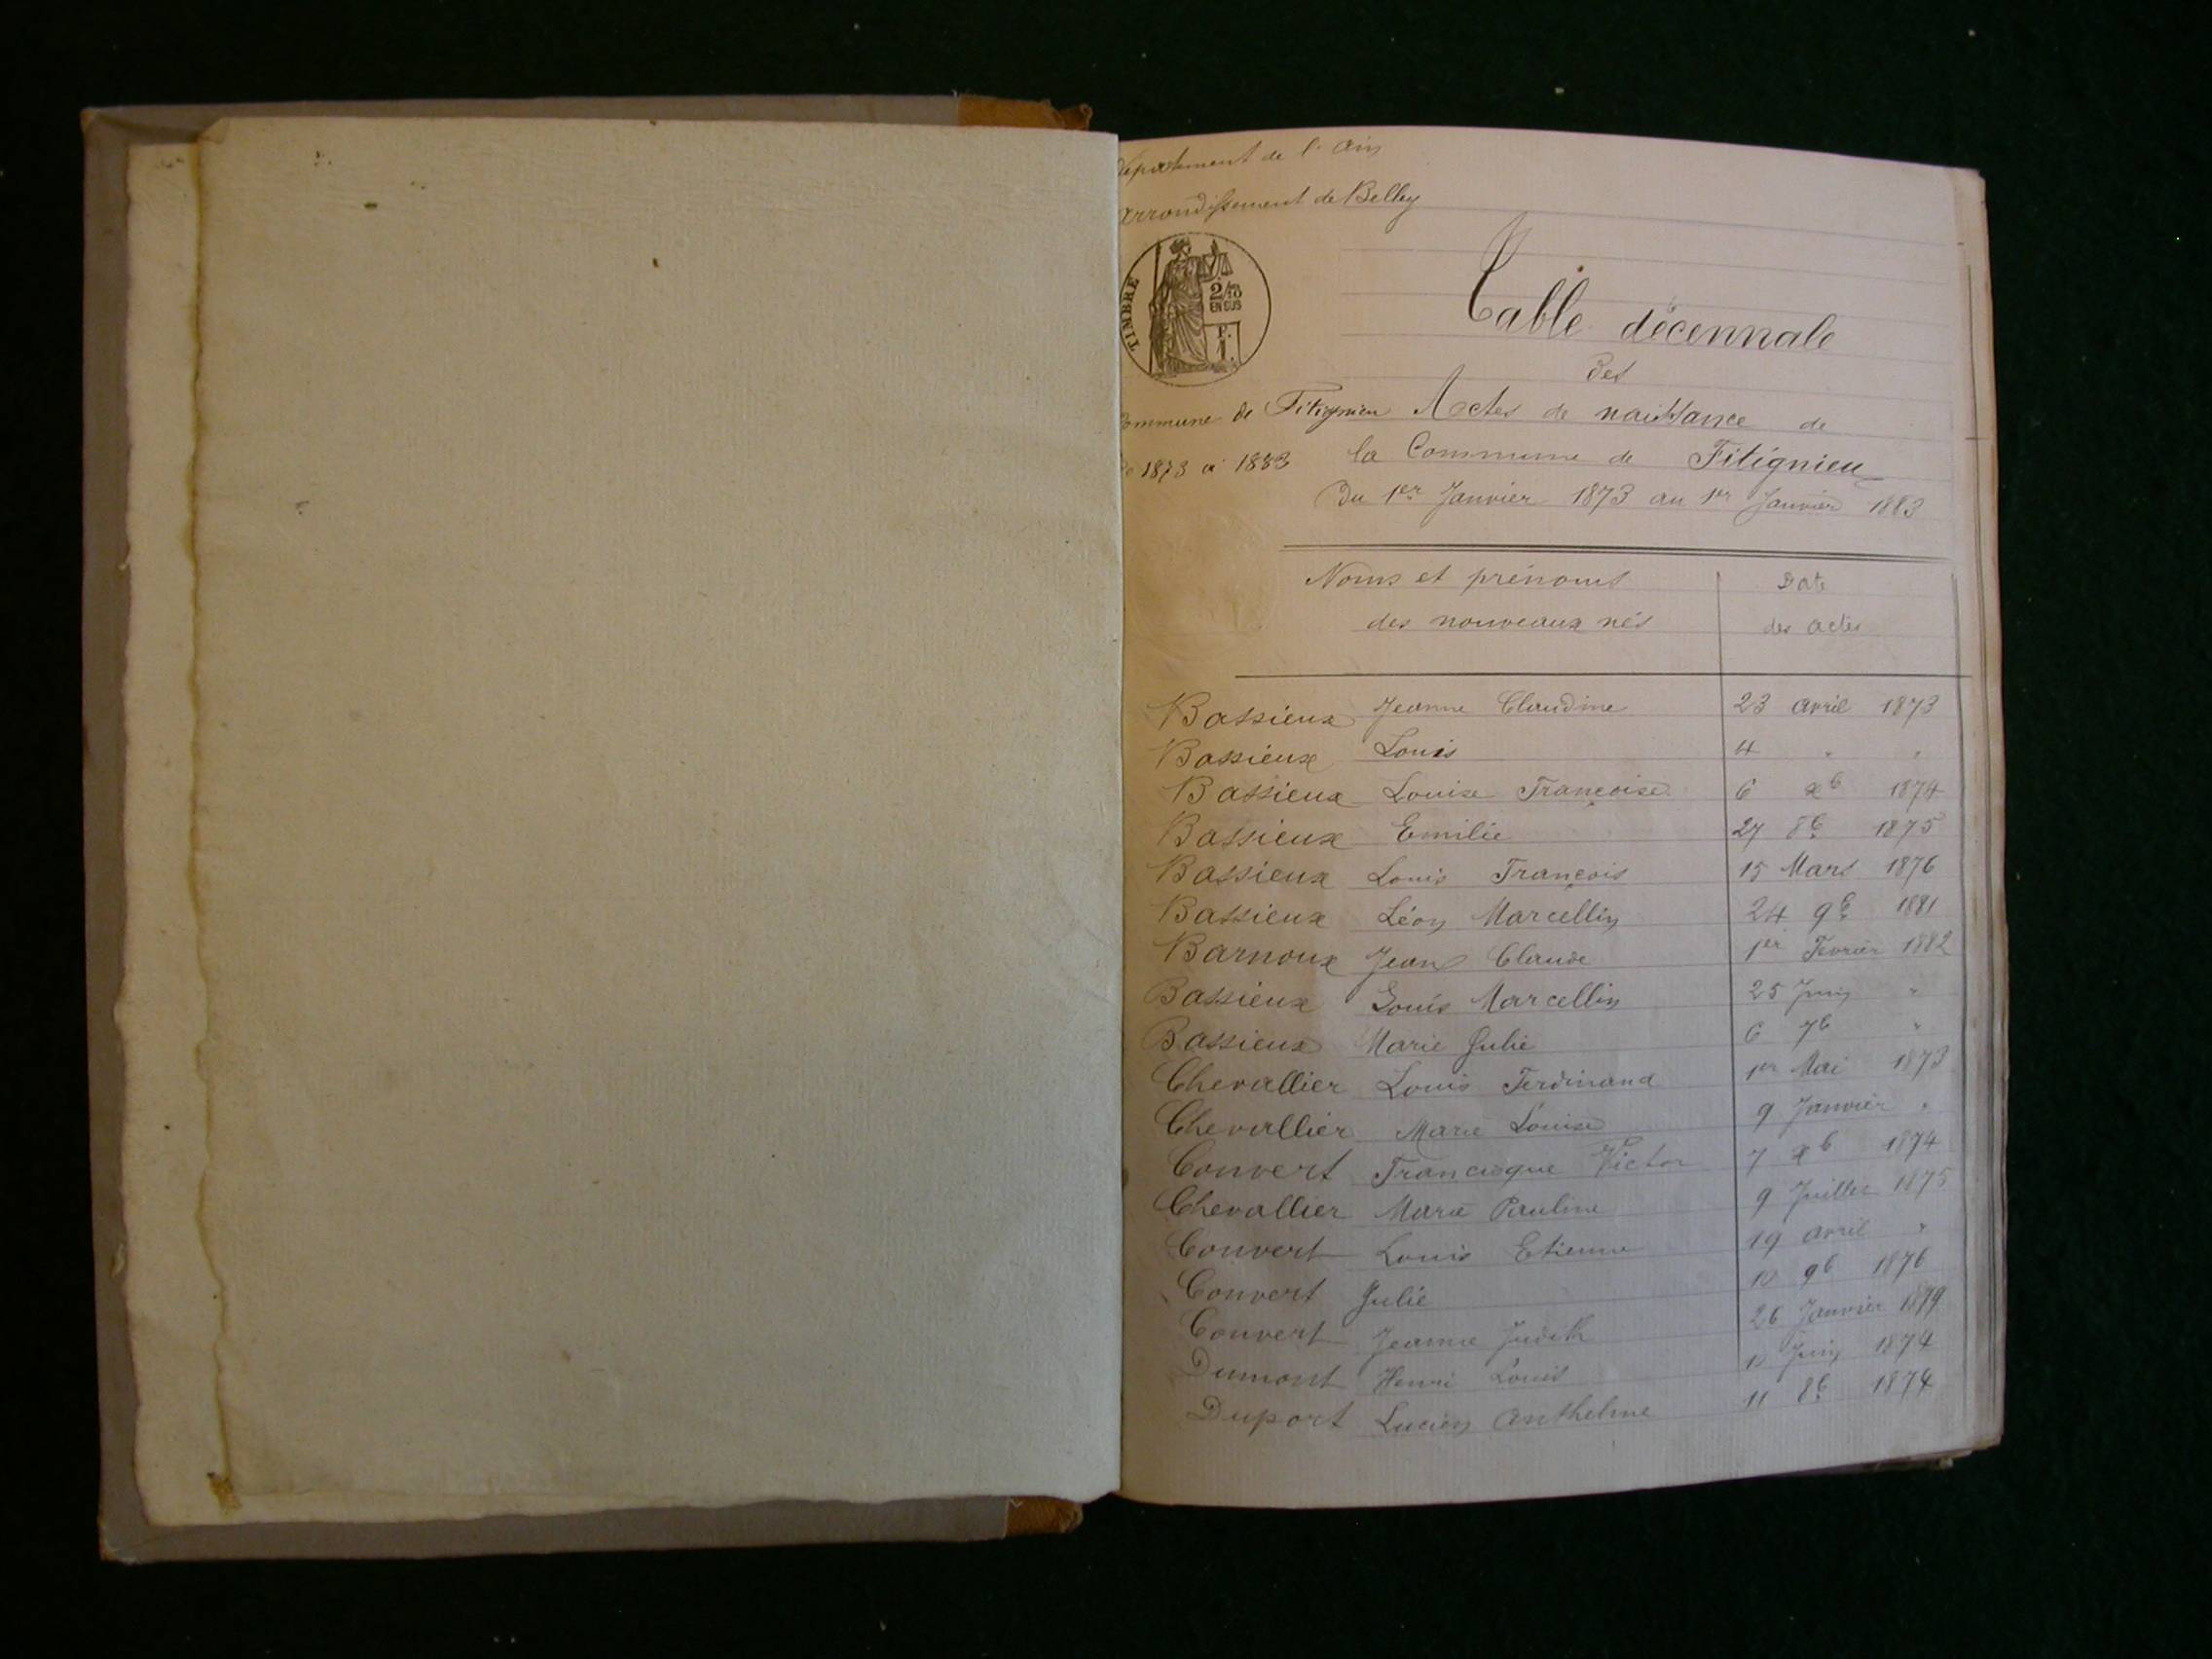 Département de l'Ain
Arrondissement de Belley
TIMBRE
2/10
EN SUS
F.
1.
Table décennale
des
Commune de Fitignieu Actes de naissance de
De 1873 à 1883 la Commune de Fitignieu
Du 1er Janvier 1873 au 1er Janvier 1883
Noms et prénoms Date
des nouveaux nés des actes
Bassieux Jeanne Claudine 23 avril 1873
Bassieux Louis 4 " "
Bassieux Louise Françoise 6 xb 1874
Bassieux Emilie 27 8b 1875
Bassieux Louis François 15 Mars 1876
Bassieux Léon Marcellin 24 9b 1881
Barnoux Jean Claude 1er Fevrier 1882
Bassieux Louis Marcellin 25 Juin "
Bassieux Marie Julie 6 7b "
Chevallier Louis Ferdinand 1er Mai 1873
Chevallier Marie Louise 9 Janvier "
Convert Francisque Victor 7 xb 1874
Chevallier Marie Pauline 9 Juillet 1875
Convert Louis Etienne 19 avril "
Convert Julie 10 9b 1876
Convert Jeanne Judith 26 Janvier 1879
Dumont Henri Louis 10 Juin 1874
Duport Lucien Anthelme 11 8b 1874